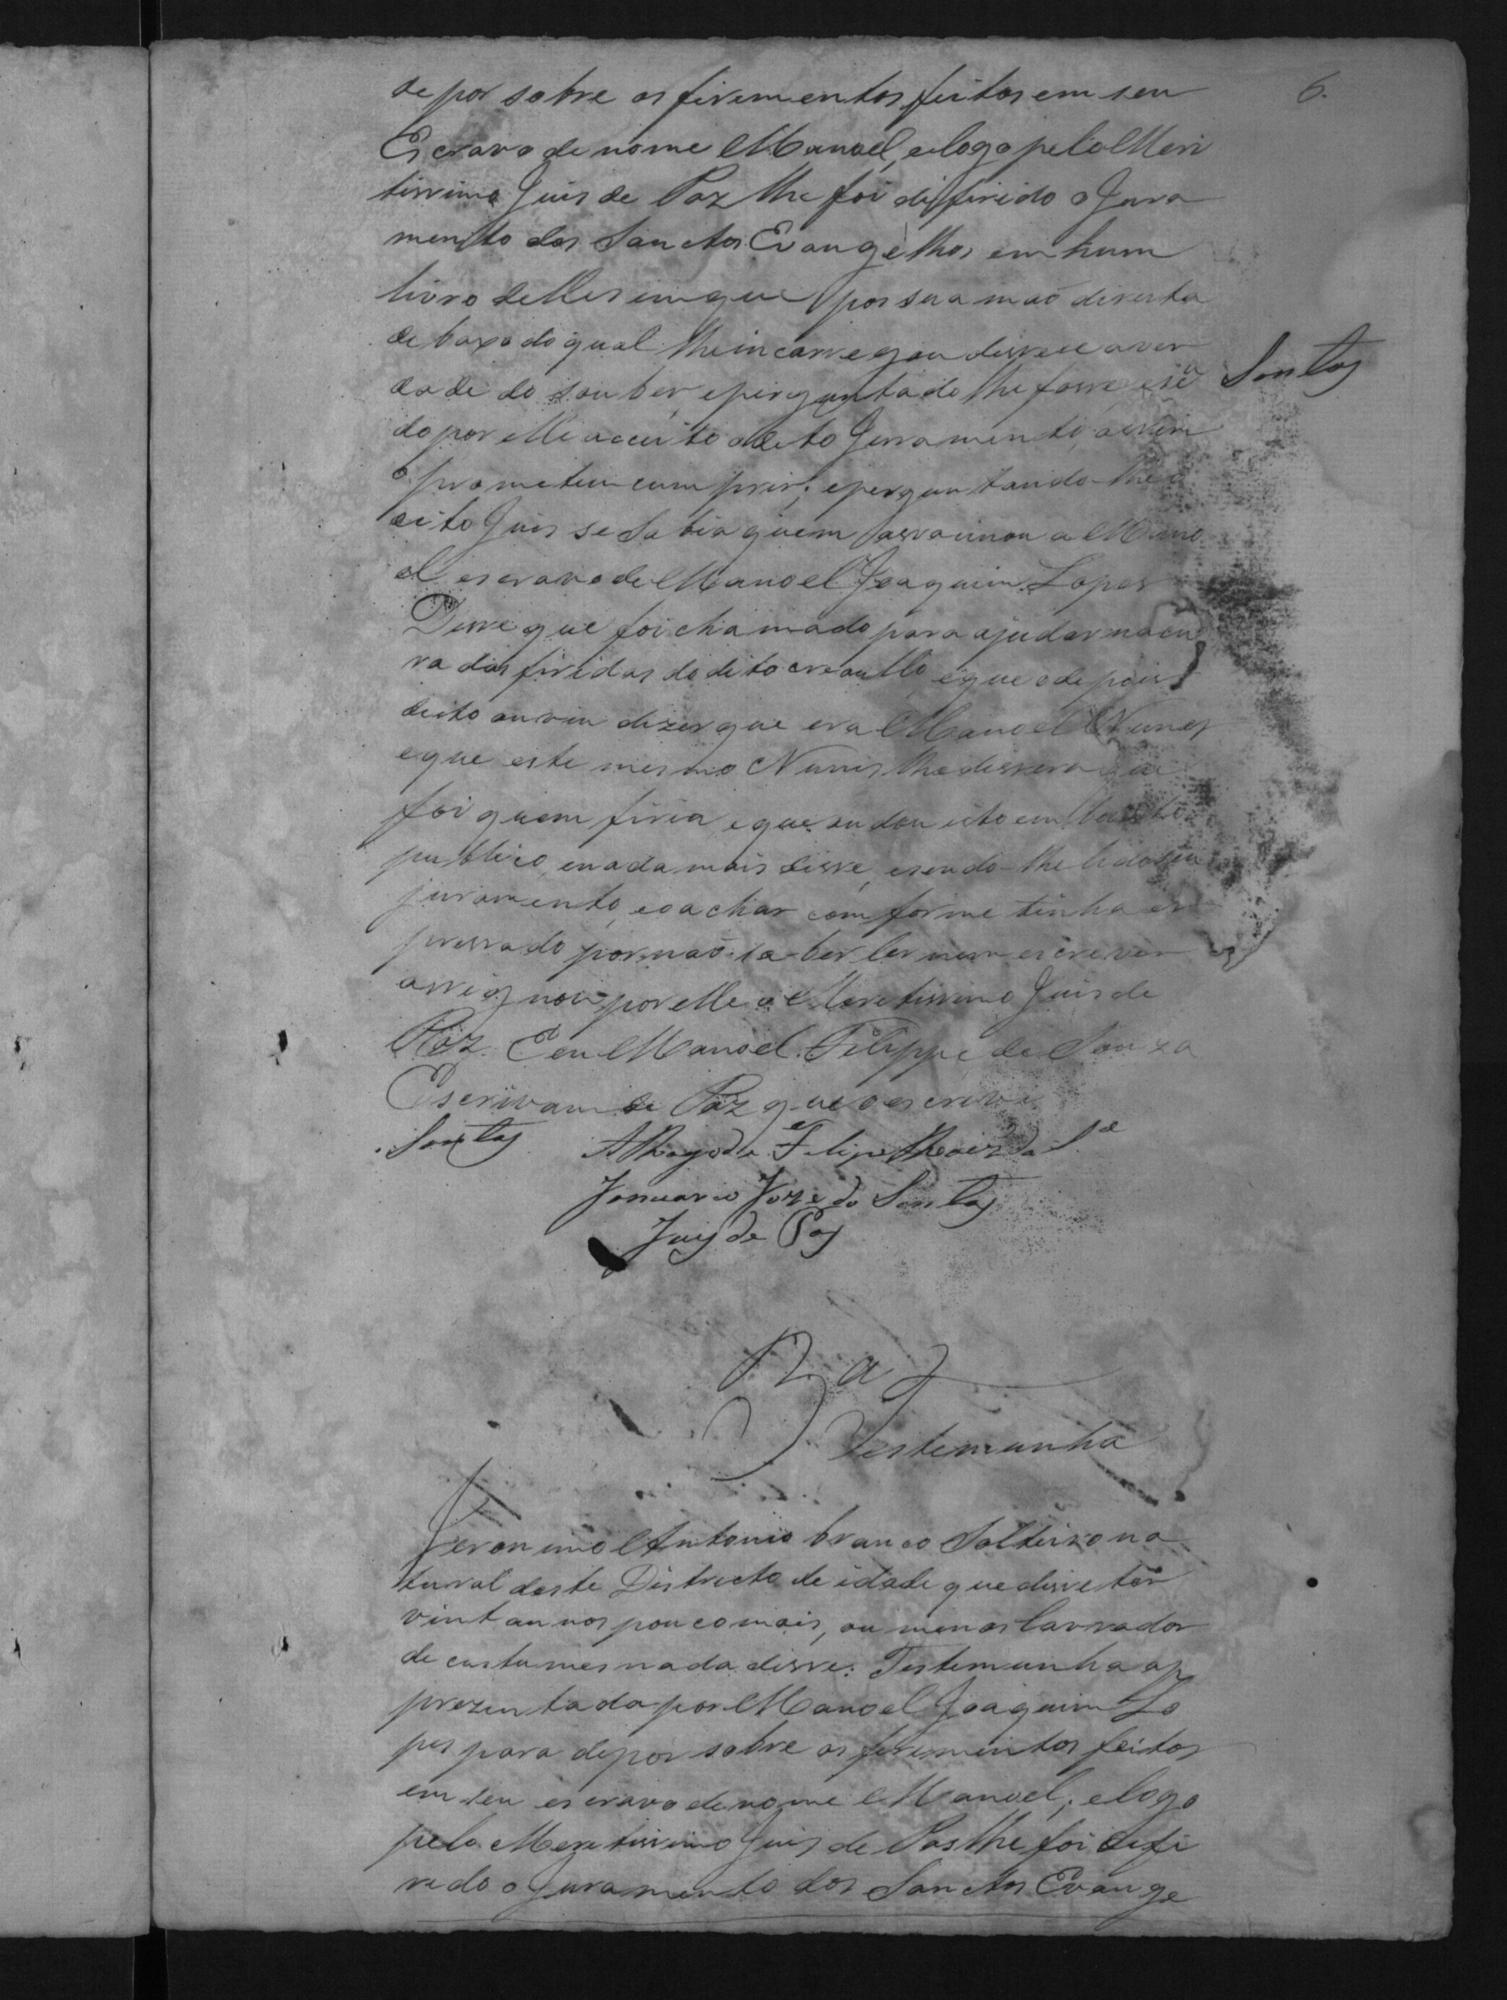 6.
depor sobre os firimentos feitos em seu
Escravo de nome Manoel, e logo pelo Meri
tissimo Juis de Paz lhe foi difirido o Jura
mento dos Sanctos Evangelhos em hum
livro delles em que por sua mão direita
debaxo do qual lhe incarregou dissese a ver
dade do souber e perguntado lhe fosse, e sen
Santos
do por elle aceito o dito Juramento, assim
o prometeu cumprir; e perguntando-lhe o
dito Juis se sabia quem assacinou a Mano
el escravo de Manoel Joaquim Lopes
Disse que foi chamado para ajudar na cu
ra das firidas do dito creoullo, e que o depois
disto ouviu dizer que era Manoel Nunes
e que este mesmo Nunes lhe dissera que
foi quem firia, e que
publico, e nada mais disse, e sendo-lhe lido seu
juramento, e o achar comforme tinha ex
pressado por não saber ler nem escrever
assignou por elle o Meretissimo Juis de
Paz. E eu Manoel Filippe de Souza
Escrivam de Paz que o escrevi
Santos
A Rogo de Felipe da Sª
Januario Joze do Santos
Juis de Paz
Testemunha
Jeronimo Antonio branco Solteiro na
tural deste Districto de idade que disse ter
vint annos pouco mais, ou menos lavrador
de custumes nada disse. Testemunha ap
prezentada por Manoel Joaquim Lo
pes para depor sobre os firimentos feitos
em seu escravo de nome Manoel; e logo
pelo Meretissimo Juis de Pas lhe foi defi
rido o Juramento dos Sanctos Evange